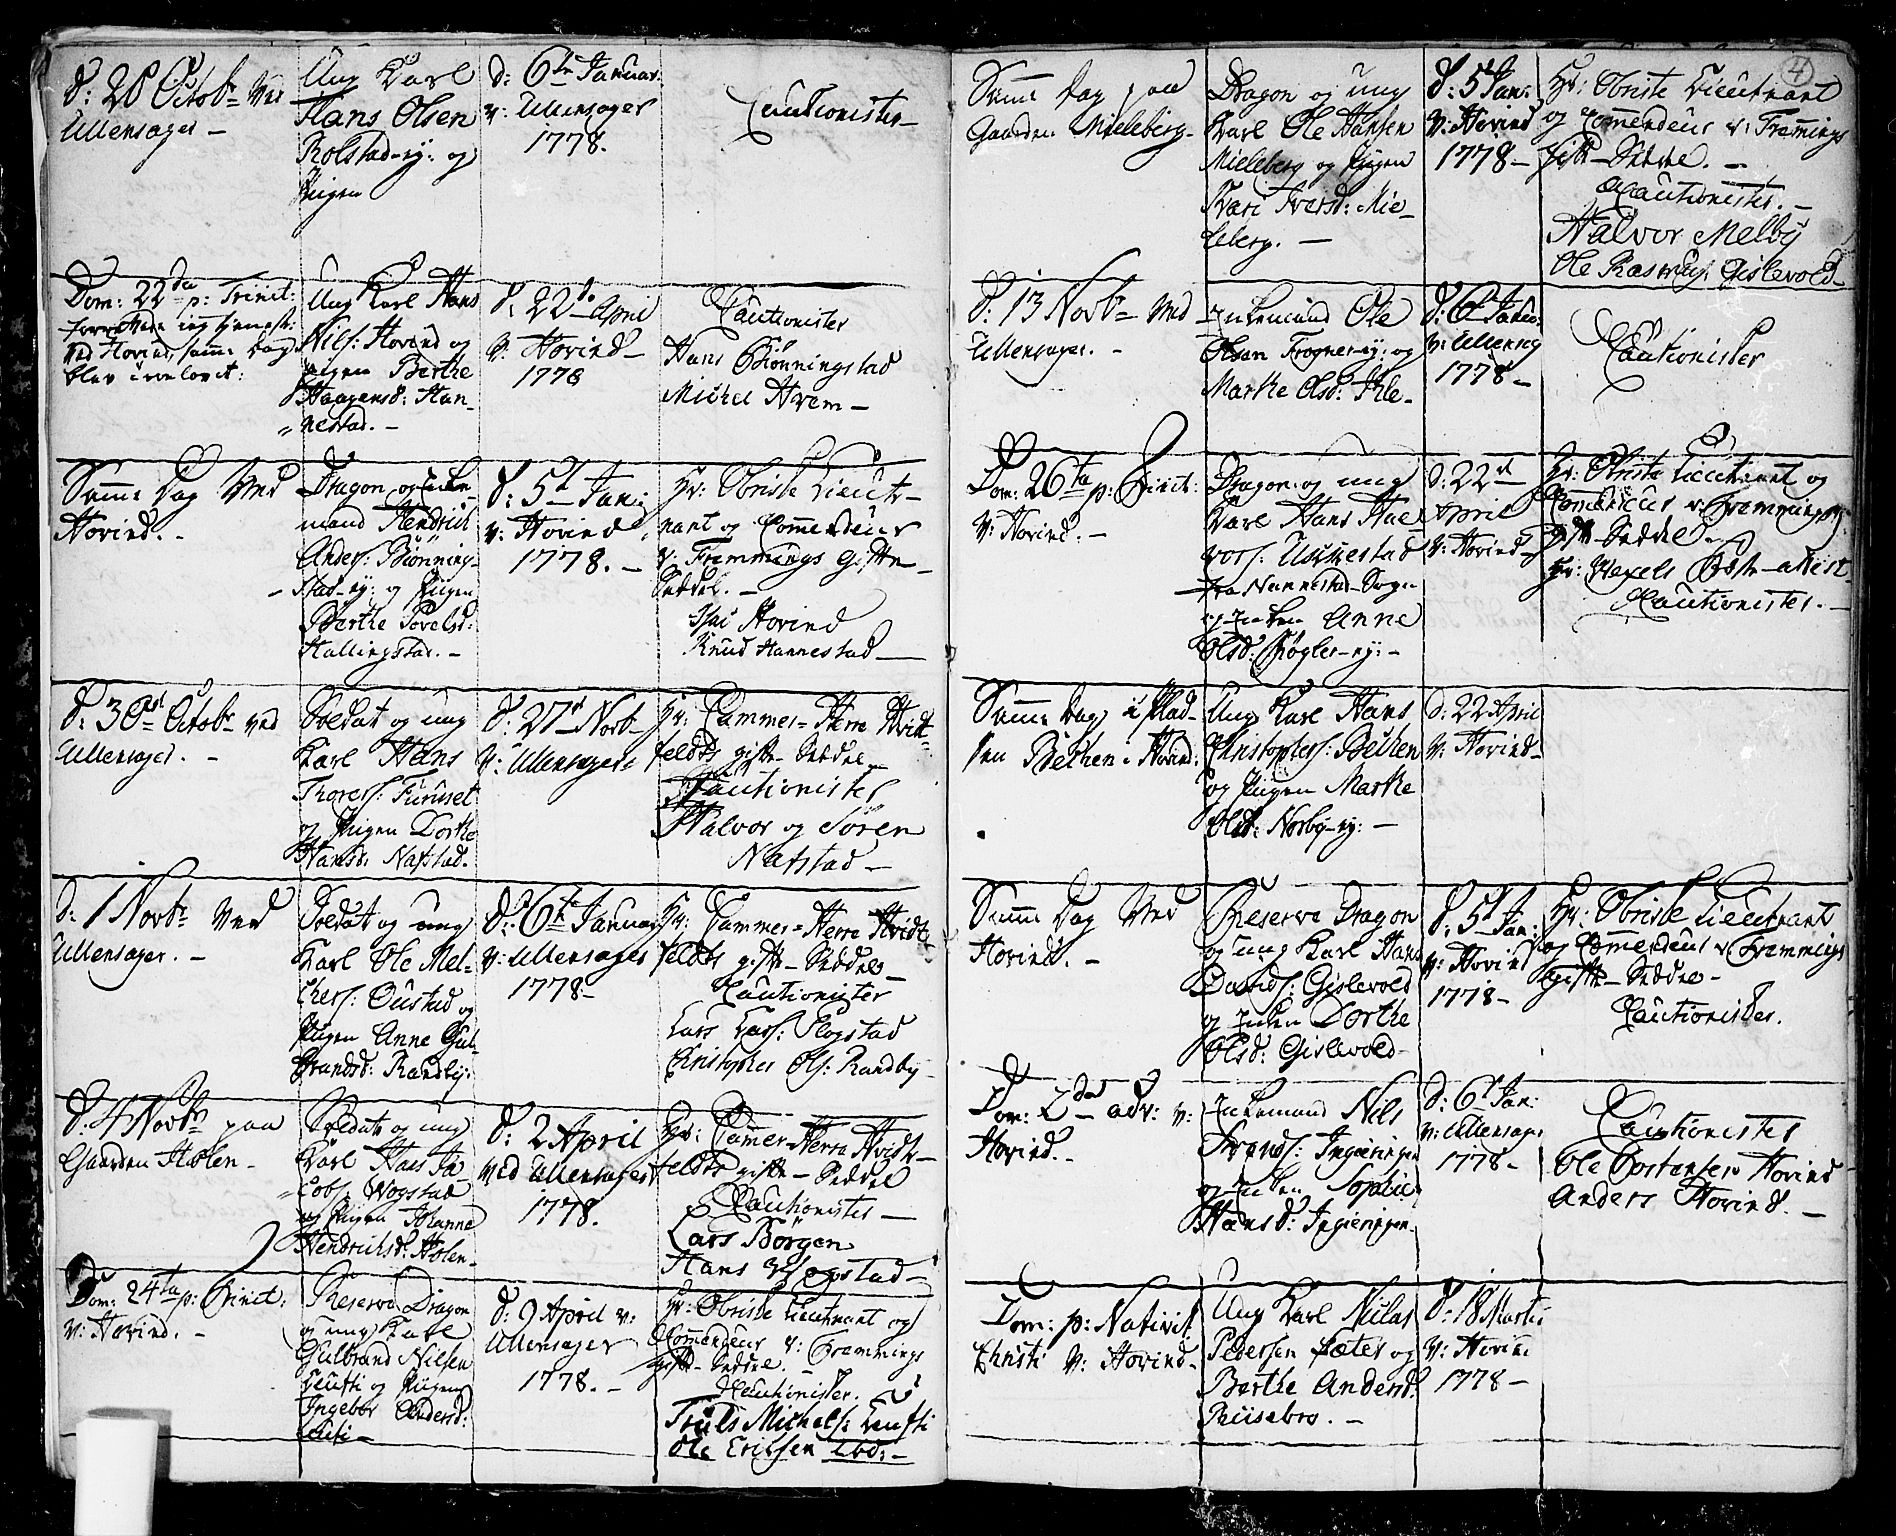 d: 20 Octobr ved
Ullensager –
Ung Karl
Hans Olsen
Rolstad-ej: og
Pigen
d: 6te Januar:
v: Ullensager
1778.
Cautionister
Dom: 22da p: Trinit:
ved Hovind, samme Dag
blev trolovet:
Ung Karl Hans
Nils: Hovind og
Pigen Berthe
Haagensd: Han-
nestad. –
d: 22de April
v: Hovind –
1778
Cautionister
Hans Bjönningstad
Michel Hvem –
Samme Dag ved
Hovind. –
Dragon og Enke-
mand Hendrich
Anders: Bjönning-
stad-ej: og Pigen
Berthe Povelsd:
Hallingstad. –
d: 5te Jan:
v: Hovind
1778. –
Hr: Obriste Lieute-
nant og Commendeur
v: Fremmings Gifte-
Seddel. –
Isac Hovind
Knud Hannestad –
d: 30te Octobr ved
Ullensager. –
Soldat og ung
Karl Hans
Thores: Furuset
og Pigen Dorthe
Hansd: Nafstad.
d: 27de Novb
v: Ullensager
Hr: Cammer-Herre Hvidt-
feldts gifte-Seddel
Cautionister
Halvor og Sören
Nafstad –
d: 1 Novbr ved
Ullensager. –
Soldat og ung
Karl Ole Mel-
chers: Oustad og
Pigen Anne Gul-
brandsd: Randby:
d: 6te Januar
v: Ullensager
1778 –
Hr: Cammer-Herre Hvidt-
feldts gifte-Seddel
Cautionister
Lars Lars: Hogstad
Christopher Ols: Randby –
d: 4 Novbr paa
Gaarden Holen –
Soldat og ung
Karl Hans Ja-
cobs: Wogstad
og Pigen Johanne
Hendrichsd: Holen –
d: 2 April
ved Ullensager
1778.
Hr: Cammer-Herre Hvidt-
feldts gifte-Seddel
Cautionister –
Lars Börgen
Hans Wogstad –
Dom: 24ta p: Trinit:
v: Hovind. –
Reserve Dragon
og ung Karl
Gulbrand Nilsen
og Pigen
Ingebor Andersd:
d: 9 April v:
Ullensager
1778. –
Hr: Obriste Lieutnant og
Commendeur v: Fremmings
gifte-Seddel.
Cautionister.
Truls Michels:
Ole Erichsen ibd: –
Samme Dag paa
Gaarden Mieleberg –
Dragon og ung
Karl Ole Hansen
Mieleberg og Pigen
Kari Iversd: Mie-
leberg. –
d: 5te Jan:
v: Hovind
1778 –
4
Hr: Obriste Lieutnant
og Commendeur v: Fremmings
gifte-Seddel. –
Cautionister. –
Halvor Melby
Ole Gislevold –
d: 13 Novbr ved
Ullensager. –
Enkemand Ole
Olsen Frogner-ej: og
Marthe Olsd: Ihle –
d: 6te Janu:
v: Ullensag
1778 –
Cautionister
Dom: 26ta p: Trinit:
v: Hovind. –
Dragon og ung
Karl Hans Hal-
vors: Ukkestad
fra Nannestad-Sogn
og Enken Anne
Olsd: Kogler-ej: –
d: 22de
April
v: Hovind –
Hr: Obriste Lieutnant og
Commendeur v: Fremmings
gifte-Seddel –
Cautionister. –
Samme Dag i Plad-
sen Bekken i Hovind:
Ung Karl Hans
Christophers: Bekken
og Pigen Marthe
Olsd: Norby-ej: –
d: 22 April
v: Hovind –
Samme Dag ved
Hovind. –
Reserve Dragon
og ung Karl Hans
Davids: Gislevold
og Enken Dorthe
Olsd: Gislevold –
d: 5te Jan:
v: Hovind
1778 –
Hr: Obriste Lieutnant
og Commendeur v: Fremmings
gifte-Seddel –
Cautionister.
Dom: 2da adv: v:
Hovind. –
Enkemand Nils
Trondsen: Ingieringen
og Enken Sophie
Hansd: Ingieringen.
d: 6te Jan:
v: Ullensag:
1778 –
Cautionister
Ole Torstensen Hovind
Anders Hovind. –
Dom: p: Nativit
Christi v: Hovind –
Ung Karl Niclas
Pedersen Sæter og
Berthe Andersd:
Riisebro. –
d: 18 Martii
v: Hovind
1778 –